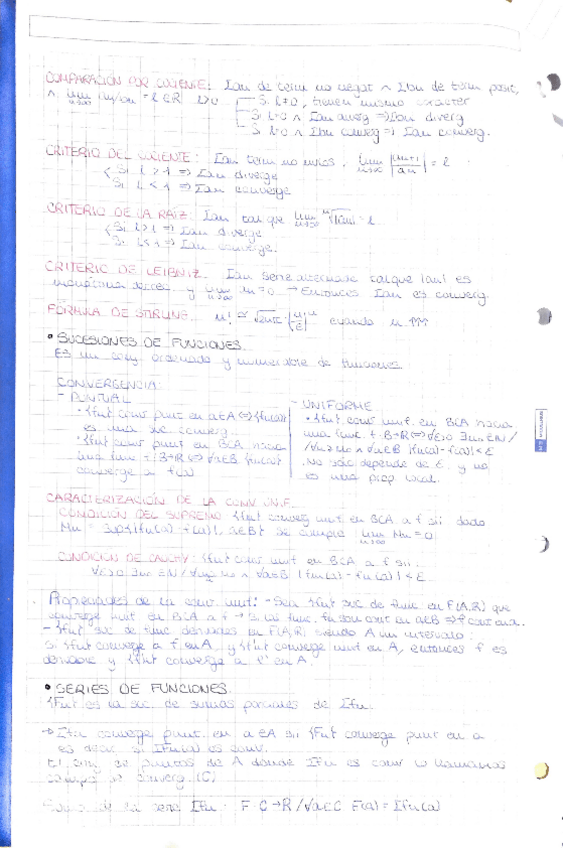 COMPARACIÓN POR COCIENTE: Σan de term no negat ∧ Σbn de térm posit,
∧ lim n→∞ an/bn = l ∈ R l>0 Si l≠0, tienen mismo carácter
Si l=0 ∧ Σan diverg ⇒ Σbn diverg
Si l=0 ∧ Σbn converg ⇒ Σan converg.
CRITERIO DEL COCIENTE: Σan term no nulos, lim n→∞ |an+1|/|an| = l
Si l > 1 ⇒ Σan diverge
Si l < 1 ⇒ Σan converge
CRITERIO DE LA RAÍZ: Σan tal que lim n→∞ ⁿ√|an| = l
Si l>1 ⇒ Σan diverge
Si l<1 ⇒ Σan converge.
CRITERIO DE LEIBNIZ. Σan serie alternada tal que |an| es
monótona decrec y lim n→∞ an=0 → Entonces Σan es converg.
FÓRMULA DE STIRLING n! ≅ √2πn (n/e)ⁿ cuando n ↑↑↑
• SUCESIONES DE FUNCIONES
Es un conj. ordenado y numerable de funciones
CONVERGENCIA:
- PUNTUAL
• {fn} conv punt en a∈A ⇔ {fn(a)}
es una suc converg.
• {fn} conv punt en B⊂A hacia
una func f: B→R ⇔ ∀a∈B {fn(a)}
converge a f(a)
- UNIFORME
• {fn} conv unif. en B⊂A hacia
una func. f: B→R ⇔ ∀ε>0 ∃n0∈N /
∀n≥n0 ∧ ∀a∈B |fn(a)-f(a)| < ε
No sólo depende de ε y no
es una prop local.
CARACTERIZACIÓN DE LA CONV UNIF.
CONDICIÓN DEL SUPREMO {fn} converg unif en B⊂A a f sii dado
Mn = sup{|fn(a)-f(a)|, a∈B} se cumple lim n→∞ Mn = 0
CONDICIÓN DE CAUCHY: {fn} conv unif en B⊂A a f sii
∀ε>0 ∃n0∈N / ∀n,m≥n0 ∧ ∀a∈B |fn(a)-fm(a)| < ε
Propiedades de la conv. unif: - Sea {fn} suc de func en F(A,R) que
converge unif en B⊂A a f → Si las func. fn son cont en a∈B ⇒ f cont en a.
- {fn} suc de func derivables en F(A,R) siendo A un intervalo:
Si {fn} converge a f en A y {f'n} converge unif en A, entonces f es
derivable y {f'n} converge a f' en A.
• SERIES DE FUNCIONES
{Fn} es la suc. de sumas parciales de Σfn.
→ Σfn converge punt. en a∈A sii {Fn} converge punt en a
es decir si Σfn(a) es conv.
El conj de puntos de A donde Σfn es conv lo llamamos
campo de converg (C)
de la serie Σfn: F: C→R / ∀a∈C F(a) = Σfn(a)